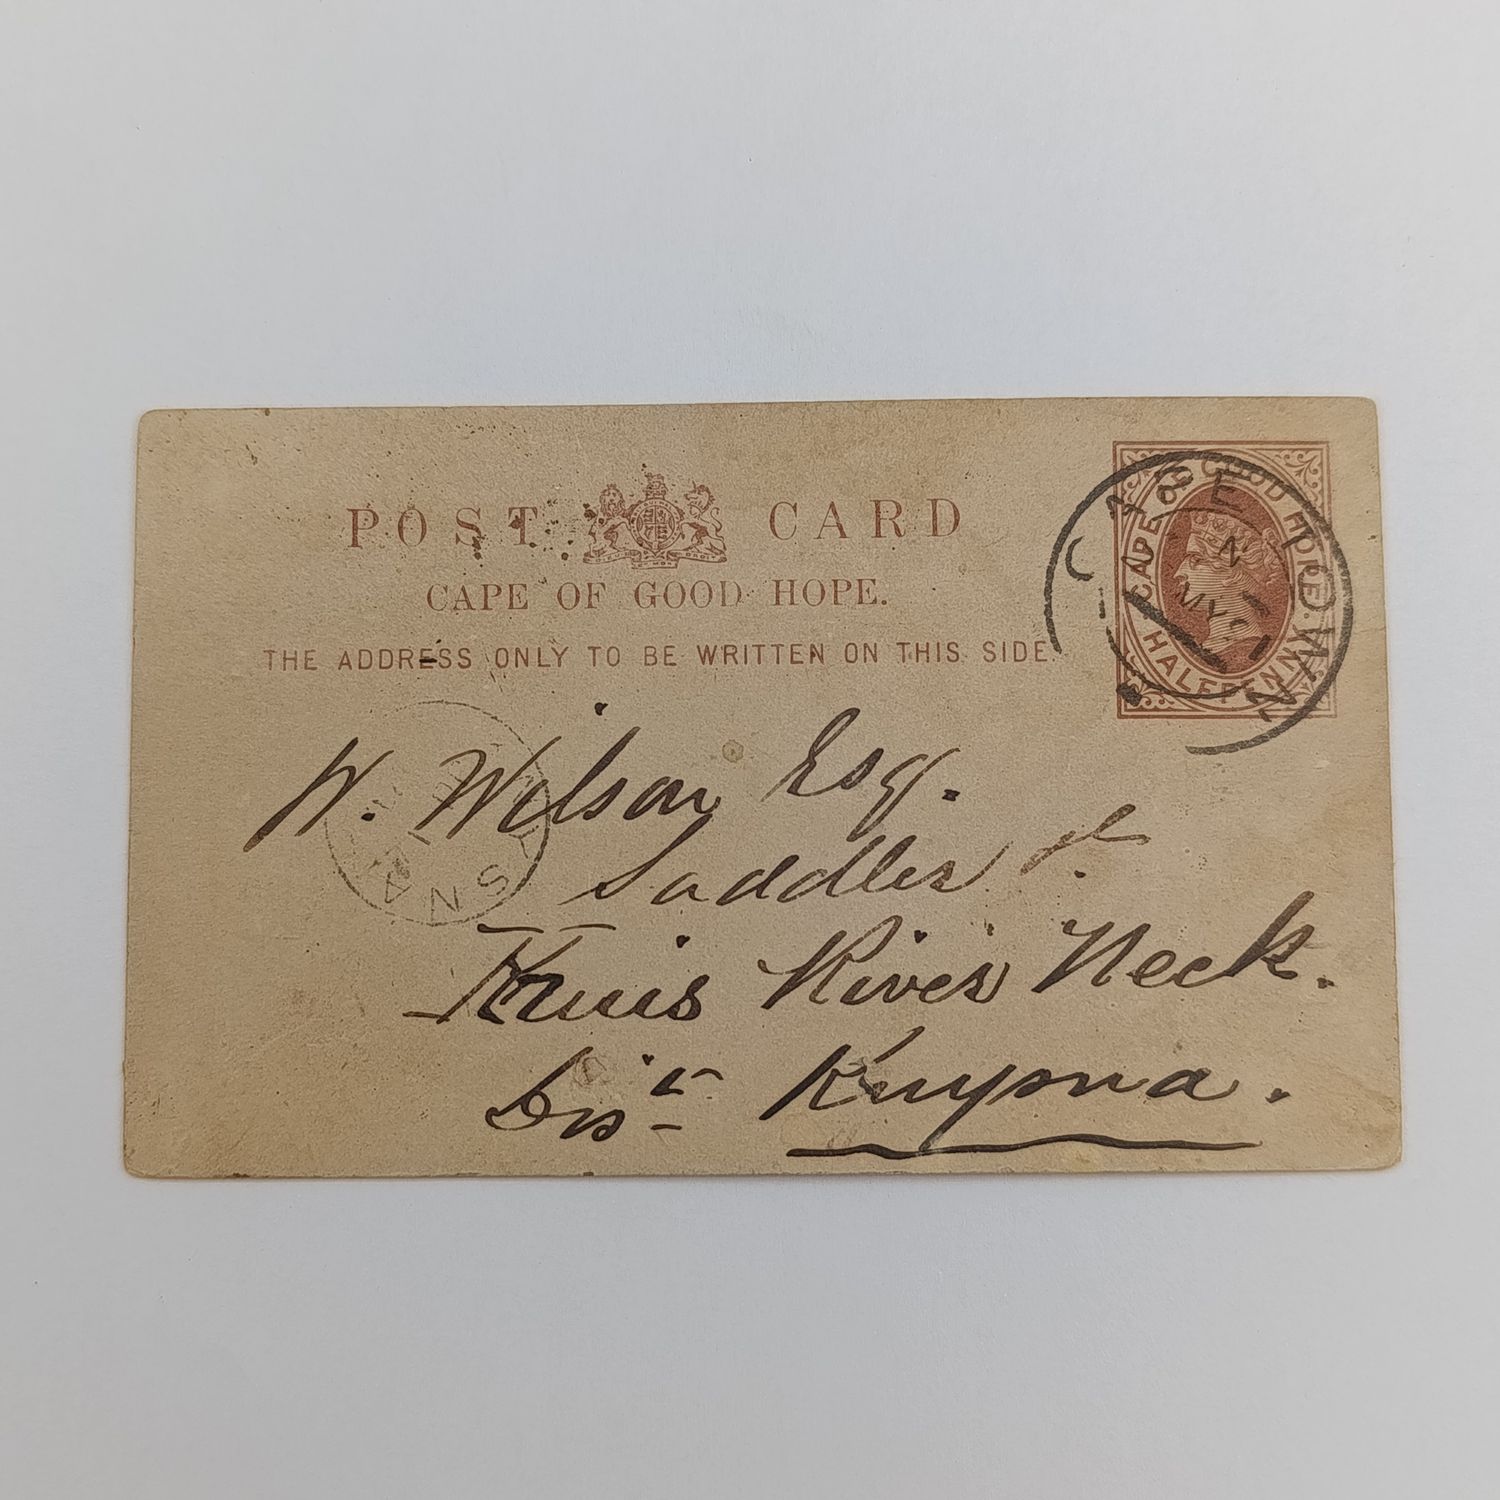 POST CARD
CAPE OF GOOD HOPE.
THE ADDRESS ONLY TO BE WRITTEN ON THIS SIDE.
CAPE OF GOOD HOPE.
HALFPENNY
CAPE TOWN
MY
W. Wilson Esq.
Saddler
Kruis River Neck.
Dist Knysna.